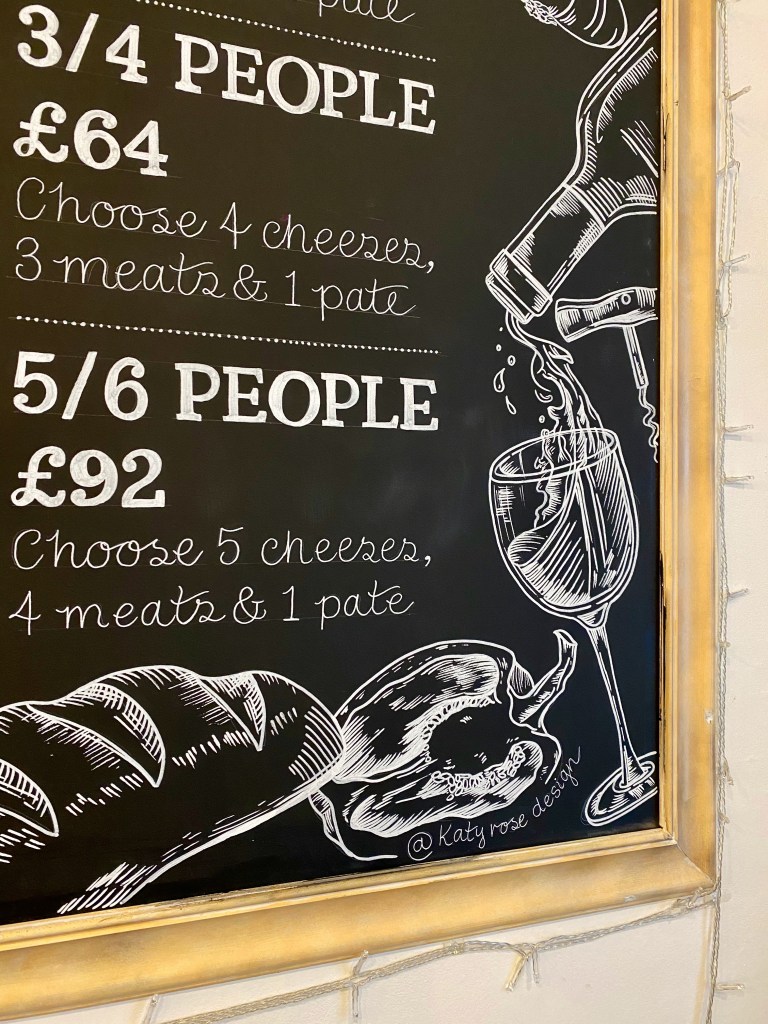 pate
3/4 PEOPLE
£64
Choose 4 cheeses,
3 meats & 1 pate
5/6 PEOPLE
£92
Choose 5 cheeses,
4 meats & 1 pate
@Katy rose design